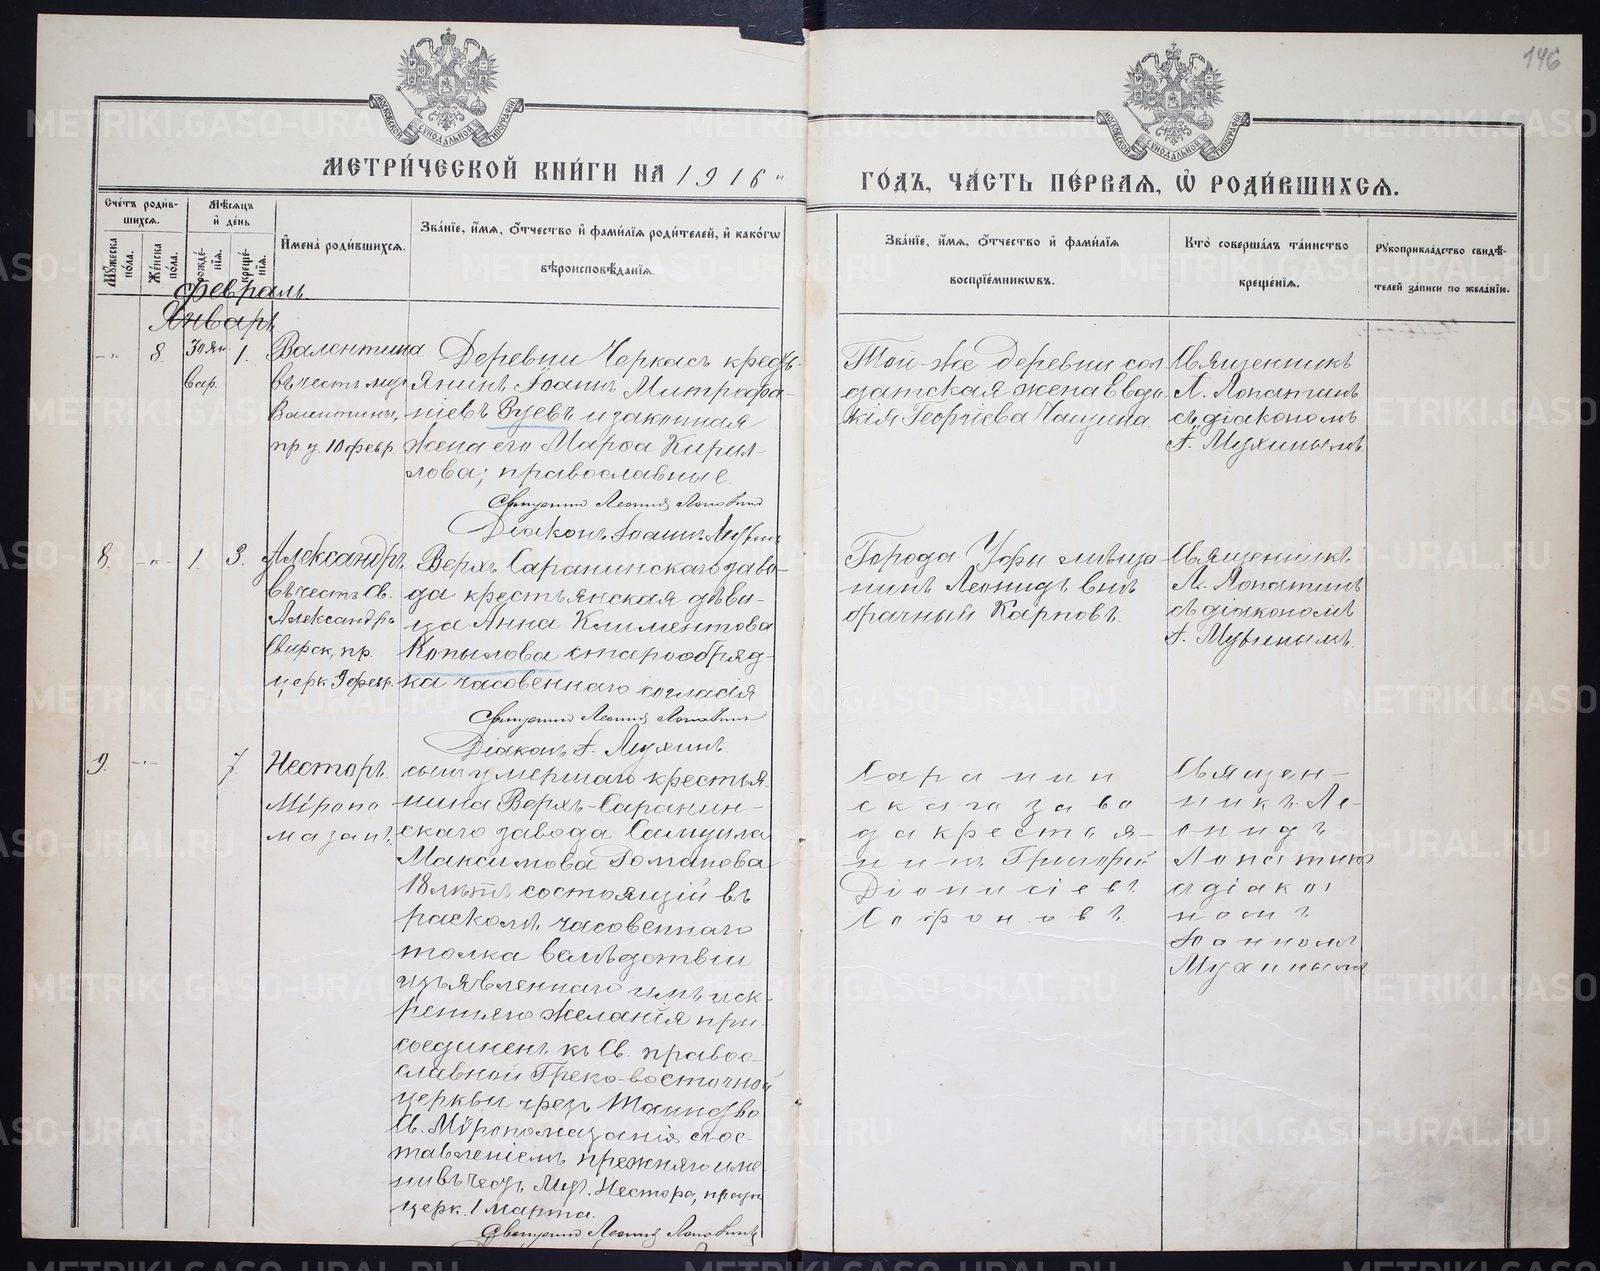 146
МЕТРИ́ЧЕСКОЙ КНИ́ГИ НА 1916 ГО́ДЪ, ЧА́СТЬ ПЕ́РВАѦ, Ѽ РОДИ́ВШИХСѦ.
МОСКОВСКОЙ СѴНОДАЛЬНОЙ ТИПОГРАФІИ
МОСКОВСКОЙ СѴНОДАЛЬНОЙ ТИПОГРАФІИ
Сче́тъ роди́в-
шихсѧ.
Мꙋжеска по́ла.
Же́нска по́ла.
Мѣ́сѧцъ
и҆ де́нь
рожде́-
нїѧ.
креще́-
нїѧ.
И҆мена̀ роди́вшихсѧ.
Зва́нїе, и҆́мѧ, ѻ҆́тчество и҆ фами́лїѧ роди́телей, и҆ како́гѡ
вѣроисповѣ́данїѧ.
Зва́нїе, и҆́мѧ, ѻ҆́тчество и҆ фами́лїѧ
воспрїе́мникѡвъ.
Кто̀ соверша́лъ та́инство
креще́нїѧ.
Рꙋкоприкла́дство свидѣ́-
телей за́писи по жела́нїю.
Февраль
Январь
8.
30 Ян-
вар.
1.
Валентина
въ честь муч.
Валентины,
пр. ц. 10 февр.
Деревни Черкасъ кресть-
янинъ Іоаннъ Митрофа-
ніевъ Зуевъ и законная
жена его Марѳа Кирил-
лова; православные.
Священникъ Леонидъ Лопатинъ
Діаконъ Іоаннъ Мухинъ
Той-же деревни сол
датская жена Евдо
кія Георгіева Чащина
Священникъ
Л. Лопатинъ
съ діакономъ
І. Мухинымъ
8.
1.
3.
Александръ
въ честь Св.
Александра
Свирск. пр.
церк 9 февр.
Верхъ Саранинскаго заво-
да крестьянская дѣви-
ца Анна Климентова
Копылова старообряд-
ка часовеннаго согласія
Священникъ Леонидъ Лопатинъ
Діаконъ І. Мухинъ
Города Уфы мѣща
нинъ Леонидъ внѣ
брачный Карповъ.
Священникъ
Л. Лопатинъ
съ діакономъ
І. Мухинымъ.
9.
7.
Несторъ.
Мѵропо
мазанъ.
сынъ умершаго крестья-
нина Верхъ-Саранин-
скаго завода Самуила
Максимова Доманова
18 лѣтъ состоящій въ
расколѣ часовеннаго
толка вслѣдствіи
изъявленнаго имъ иск-
ренняго желанія при-
соединенъ къ Св. право-
славной Греко-восточной
церкви чрезъ Таинство
Св. Мѵропомазанія съ ос-
тавленіемъ прежняго име-
ни въ честь Муч. Нестора,
церк. 1 Марта.
Священникъ Леонидъ Лопатинъ
Саранин
скаго заво
да крестья-
нинъ Григорій
Діонисіевъ
Софоновъ.
Священ-
никъ Ле-
онидъ
Лопатинъ
діако
номъ
Іоанномъ
Мухинымъ
METRIKI.GASO-URAL.RU